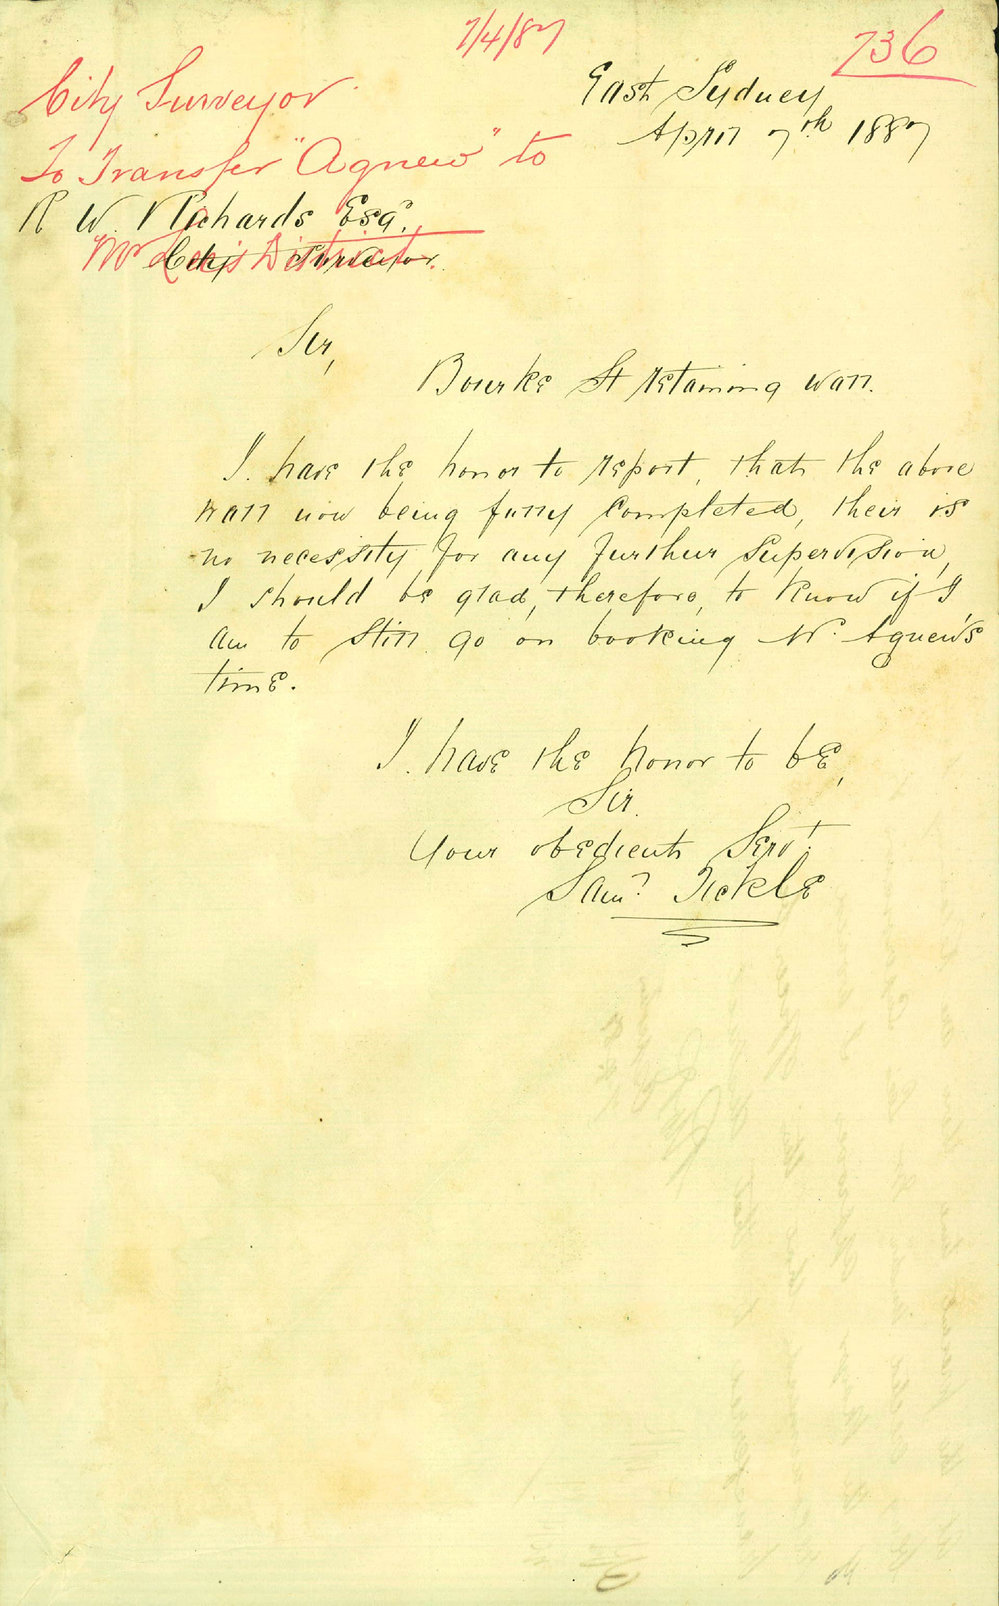 7/4/87
736
City Surveyor
To Transfer "Agnew" to
Mr District.
East Sydney
April 7th 1887
R W Richards Esqr.
City Surveyor.
Sir,
Bourke St retaining wall.
I have the honor to report, that the above
wall now being fully completed, their is
no necessity for any further supervision,
I should be glad, therefore, to know if I
am to still go on booking W. Agnew's
time.
I have the honor to be,
Sir.
Your obedient Servt.
Saml Tickle